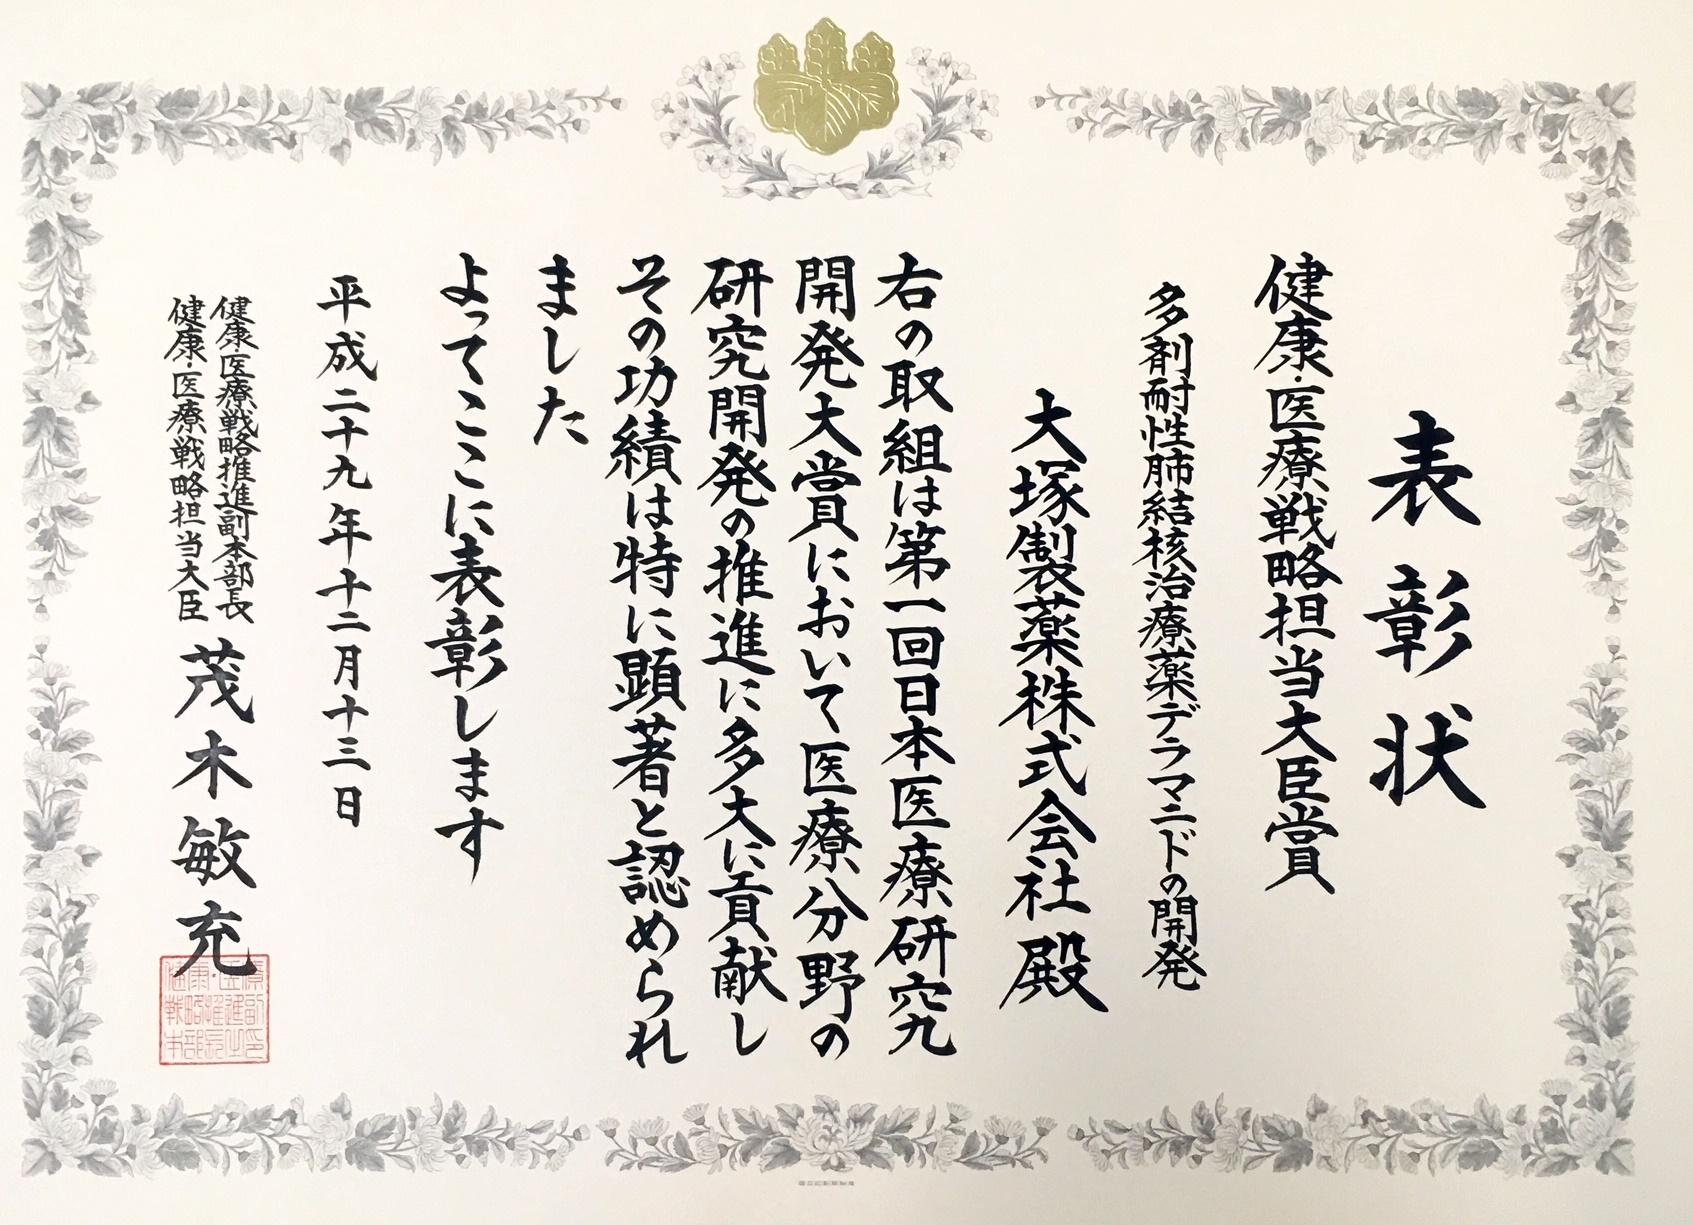 表彰状
健康・医療戦略担当大臣賞
多剤耐性肺結核治療薬デラマニドの開発
大塚製薬株式会社殿
右の取組は第一回日本医療研究
開発大賞において医療分野の
研究開発の推進に多大に貢献し
その功績は特に顕著と認められ
ました
よってここに表彰します
平成二十九年十二月十三日
健康・医療戦略推進副本部長
健康・医療戦略担当大臣
茂木敏充